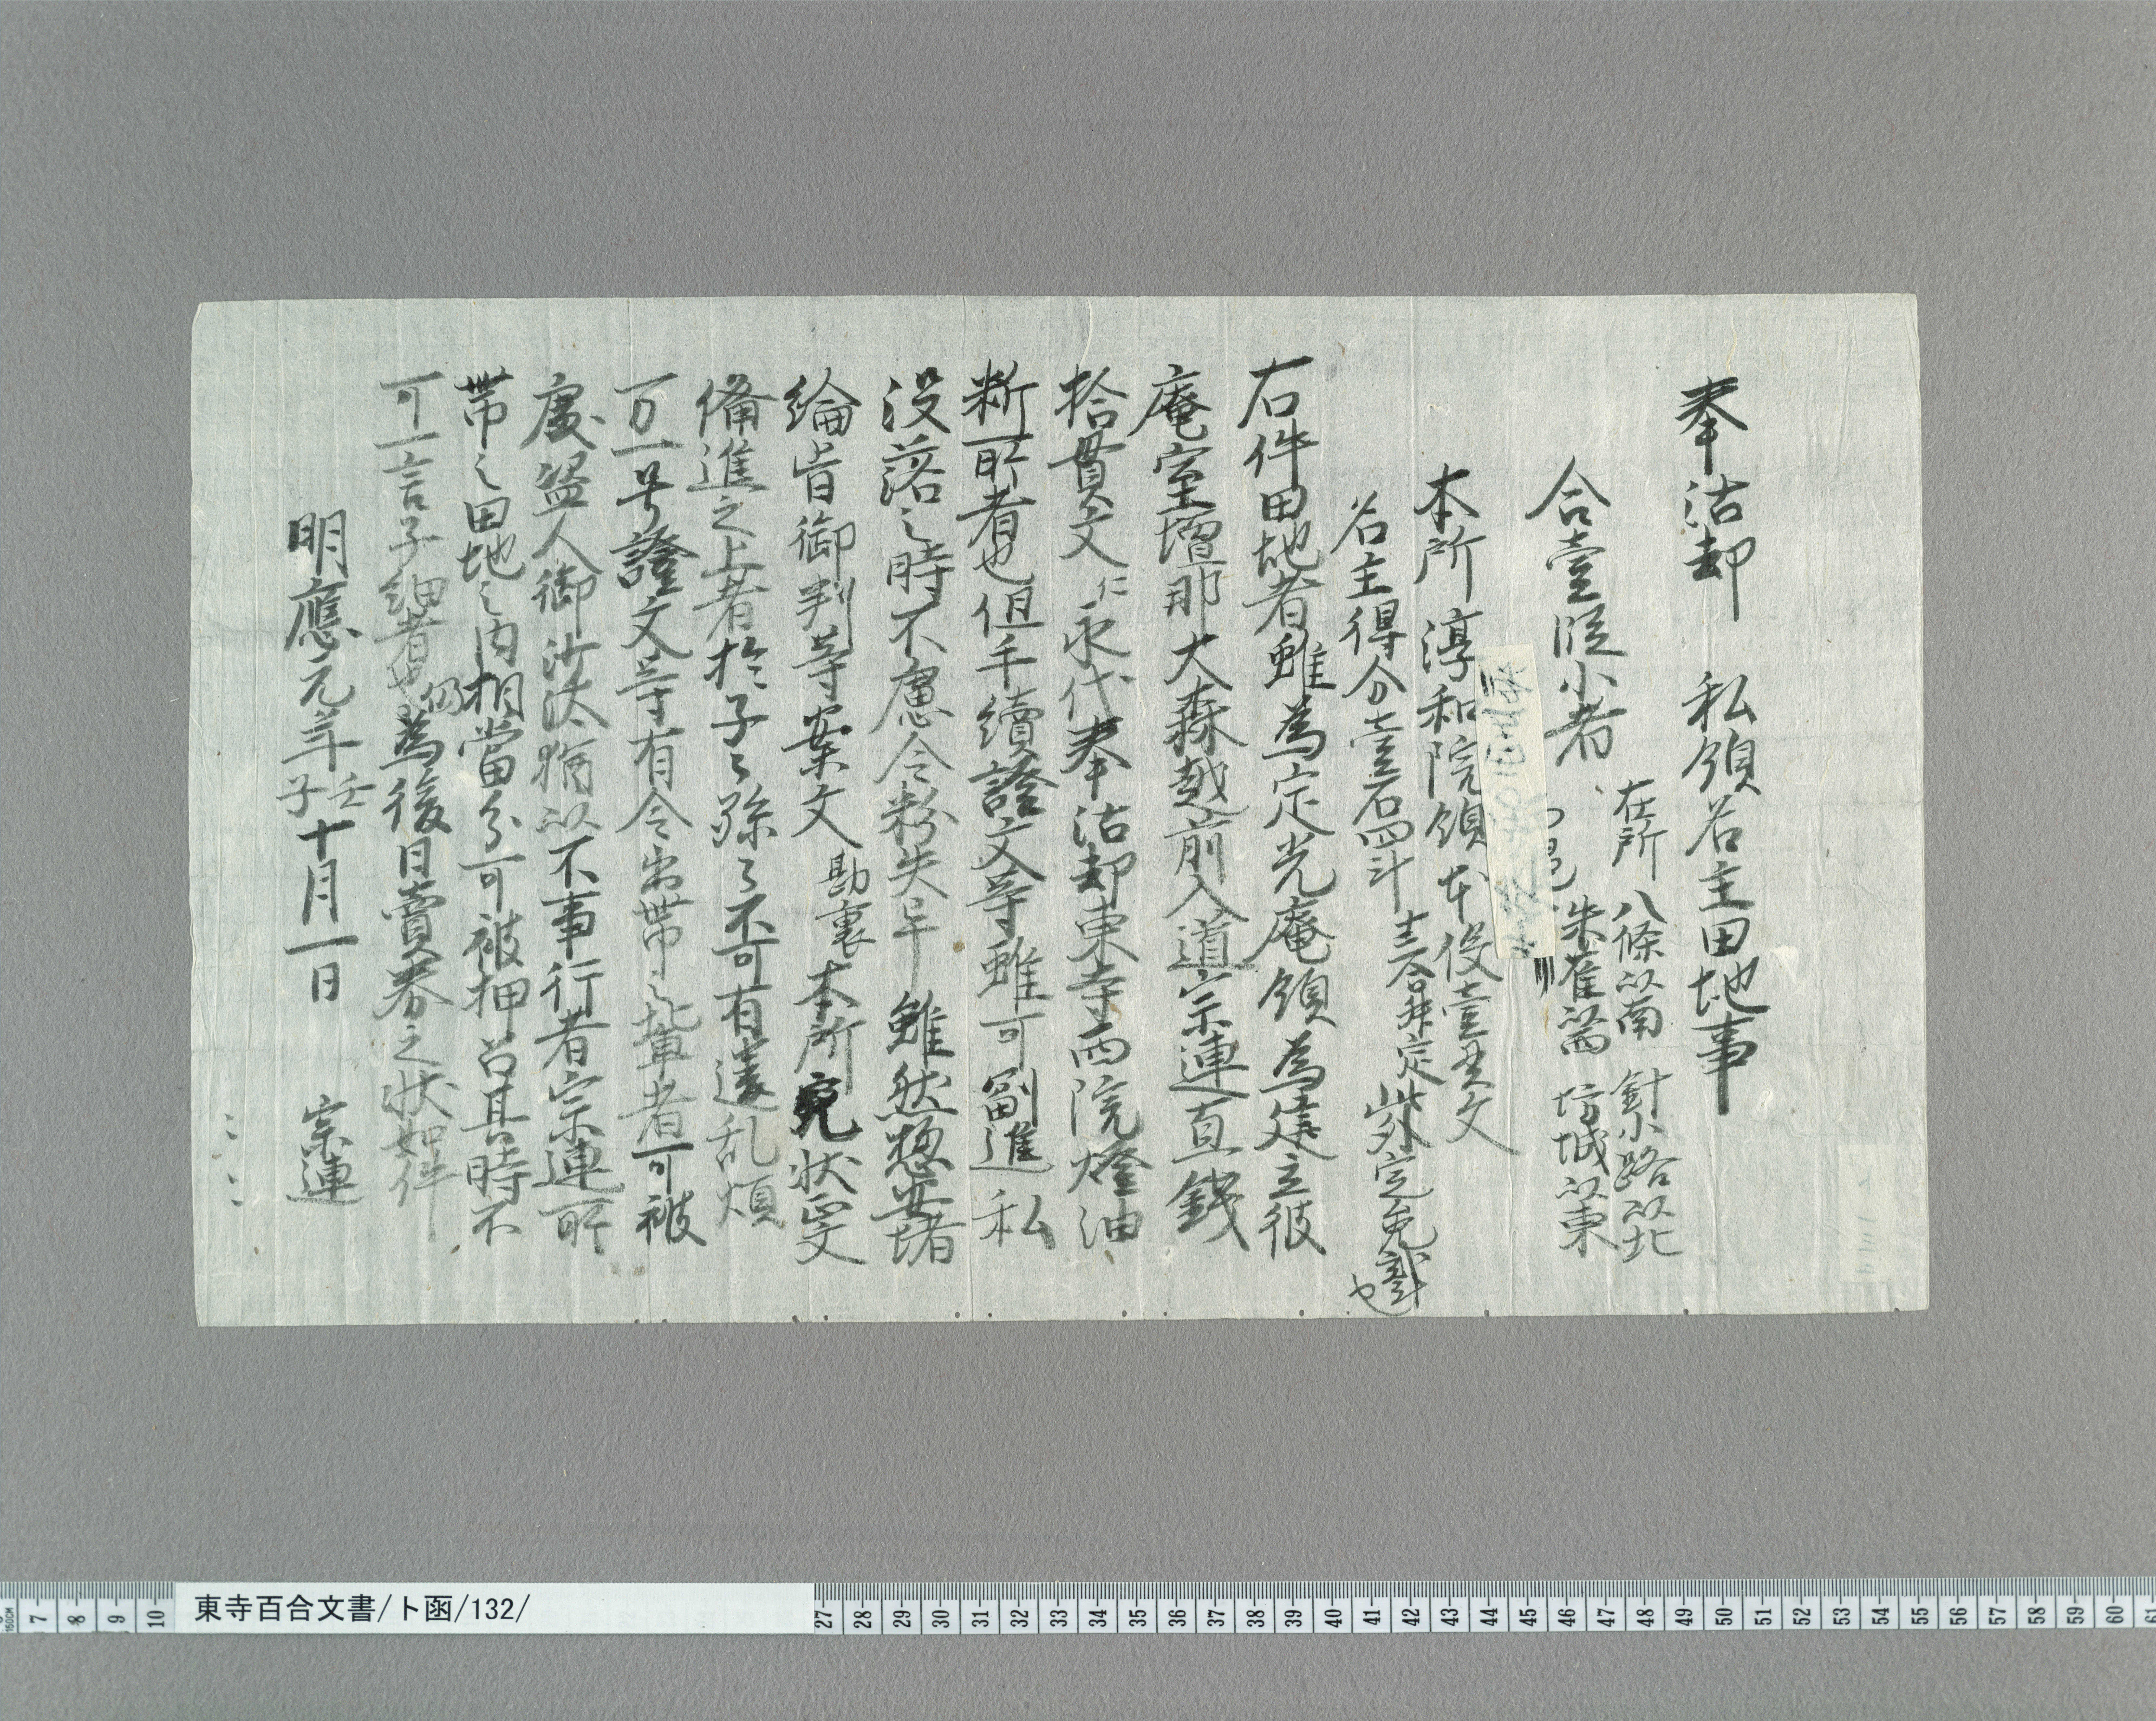 奉沽却　私領名主田地事
合壹段小者
在所　八條以南　針小路以北
朱雀以西　坊城以東
本所淳和院領本役壹貫文
名主得分壹石四斗 十三合升定 此外定免斗代也
右件田地者雖為定光庵領為建立彼
庵室壇那大森越前入道宗連直錢
拾貫文仁永代奉沽却東寺西院燈油
析所者也但手續證文等雖可副進私
没落之時不慮令粉失畢雖然惣安堵
綸旨御判等案文 勘裏 本所宛状正文
備進之上者於子々孫々不可有違乱煩
万一号證文等有令出帶之輩者可被
處盗人御沙汰猶以不事行者宗連所
帶之田地之内相當分可被押召其時不
可一言子細者也仍為後日賣券之状如件
明應元年 壬子 十月一日　宗連
東寺百合文書/ト函/132/